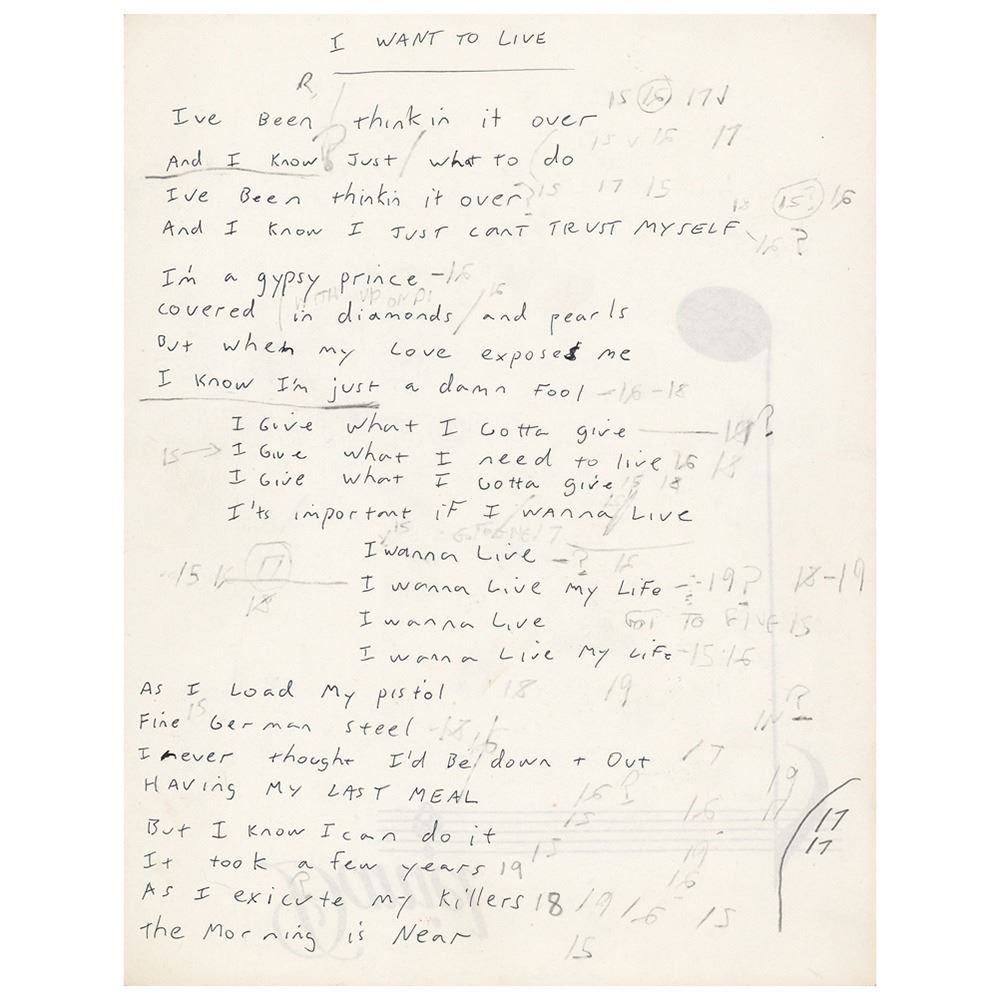 I WANT TO LIVE
R,
Ive Been think in it over 15 16 17
And I Know ? Just what to do 15 v 16 17
Ive Been thinkin it over ? 15 17 15
18 15? 16
And I Know I JUST CANT TRUST MYSELF 16 ?
I'm a gypsy prince -16
WITH UP ON DI 16
covered in diamonds / and pearls
But when my Love exposes me
I Know I'm just a damn Fool -16-18
I Give what I Gotta give 18?
15 → I Give what I need to live 16 18
I Give what I Gotta give 15 18
I'ts important iF I wanna Live
15
I wanna Live -? 16
-15 16 17 I wanna Live My LiFe -19? 18-19
18
I wanna Live GOT TO FIVE 15
I wanna Live My LiFe -15-16
As I Load My pistol 18 19
Fine 15 German Steel -18
IN ?
I never thought I'd Be/down + Out 17
HAVing MY LAST MEAL 16? 19
15 16 17 17
But I Know I can do it 17
It took a few years 19 15 19
16
As I exicute my Killers 18 19 16 15
the Morning is Near
15